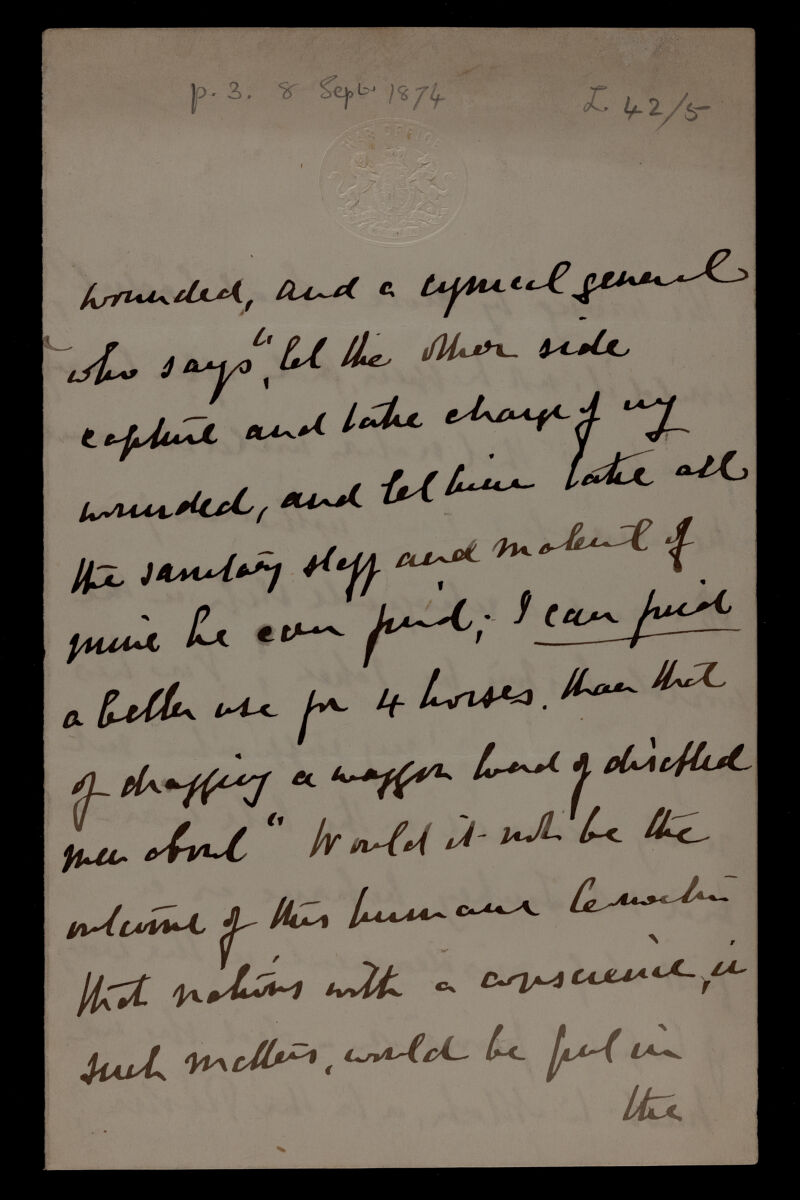 p. 3. 8 Sept. 1874
L. 42/5
WAR OFFICE
wounded, and a cynical general
who says, "let the other side
capture and take charge of my
wounded, and let him take all
the sanitary staff and material of
mine he can find; I can find
a better use for 4 horses. than that
of dragging a waggon load of disabled
men about" Would it not be the
outcome of this humane
that nations with a conscience, in
such matters, would be put in
the